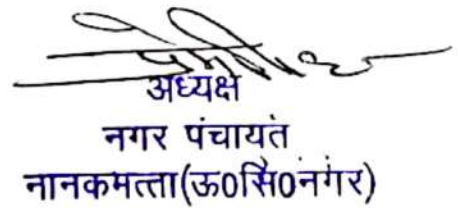 अध्यक्ष
नगर पंचायत
नानकमत्ता(ऊ0सि0नगर)